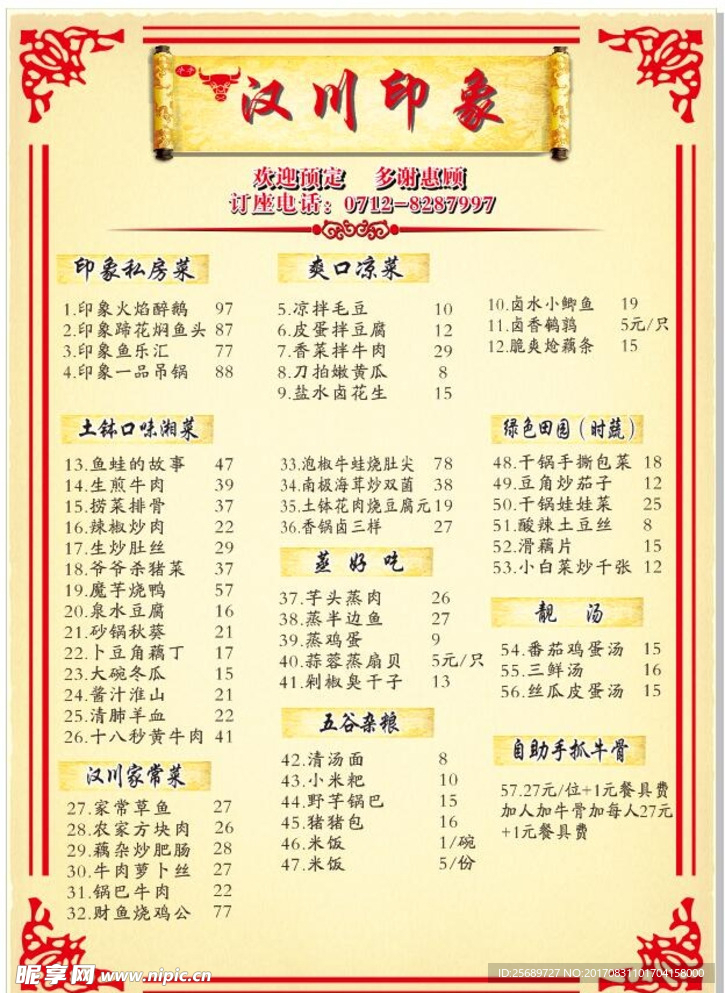 牛牛
汉川印象
欢迎预定 多谢惠顾
订座电话：0712-8287997
印象私房菜
1.印象火焰醉鹅 97
2.印象蹄花焖鱼头 87
3.印象鱼乐汇 77
4.印象一品吊锅 88
爽口凉菜
5.凉拌毛豆 10
6.皮蛋拌豆腐 12
7.香菜拌牛肉 29
8.刀拍嫩黄瓜 8
9.盐水卤花生 15
10.卤水小鲫鱼 19
11.卤香鹌鹑 5元/只
12.脆爽炝藕条 15
土钵口味湘菜
13.鱼蛙的故事 47
14.生煎牛肉 39
15.捞菜排骨 37
16.辣椒炒肉 22
17.生炒肚丝 29
18.爷爷杀猪菜 37
19.魔芋烧鸭 57
20.泉水豆腐 16
21.砂锅秋葵 21
22.卜豆角藕丁 17
23.大碗冬瓜 15
24.酱汁淮山 21
25.清肺羊血 22
26.十八秒黄牛肉 41
汉川家常菜
27.家常草鱼 27
28.农家方块肉 26
29.藕杂炒肥肠 28
30.牛肉萝卜丝 27
31.锅巴牛肉 22
32.财鱼烧鸡公 77
33.泡椒牛蛙烧肚尖 78
34.南极海茸炒双菌 38
35.土钵花肉烧豆腐元 19
36.香锅卤三样 27
蒸好吃
37.芋头蒸肉 26
38.蒸半边鱼 27
39.蒸鸡蛋 9
40.蒜蓉蒸扇贝 5元/只
41.剁椒臭干子 13
五谷杂粮
42.清汤面 8
43.小米粑 10
44.野芋锅巴 15
45.猪猪包 16
46.米饭 1/碗
47.米饭 5/份
绿色田园（时蔬）
48.干锅手撕包菜 18
49.豆角炒茄子 12
50.干锅娃娃菜 25
51.酸辣土豆丝 8
52.滑藕片 15
53.小白菜炒千张 12
靓汤
54.番茄鸡蛋汤 15
55.三鲜汤 16
56.丝瓜皮蛋汤 15
自助手抓牛骨
57.27元/位+1元餐具费
加人加牛骨加每人27元
+1元餐具费
昵享网 www.nipic.cn
ID:25689727 NO:20170831101704158000